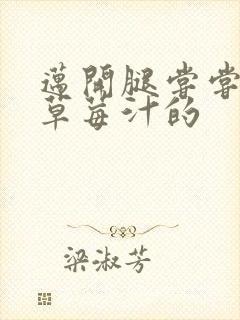 邁開腿嘗嘗
草莓汁的
梁淑芳